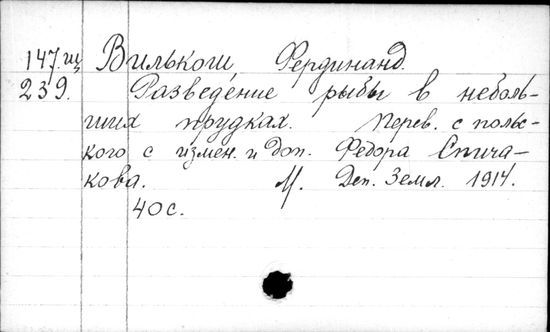 147.щ Вилькош Фердинанд.
239. Разведение рыбы в неболь-
ших прудках. Перев. с поль-
ского с измен. и доп. Федора Спича-
кова. М. Деп. Земл. 1914.
40 с.